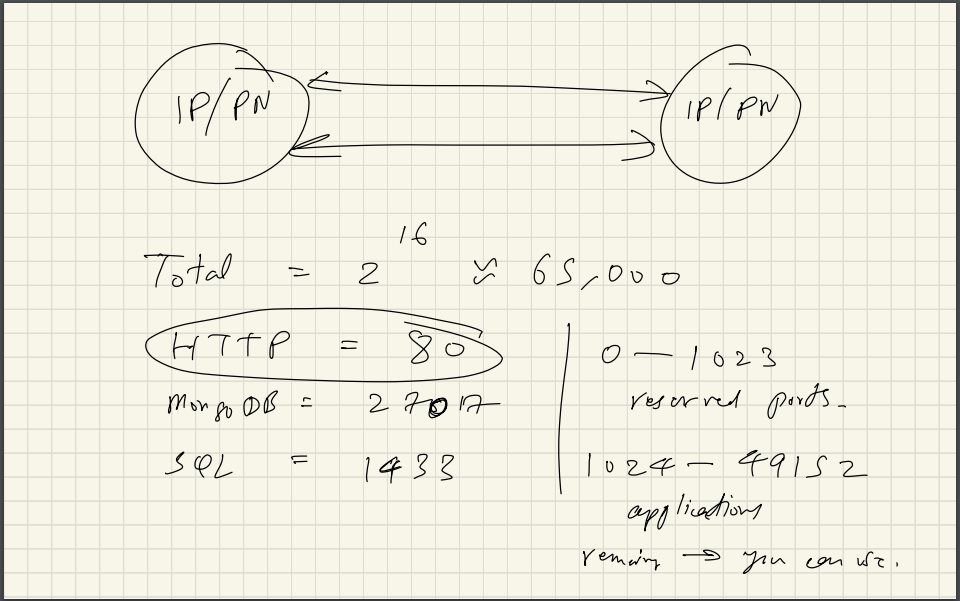 IP/PN
IP/PN
Total = 2^16 ≈ 65,000
HTTP = 80
MongoDB = 27017
SQL = 1433
0 — 1023
reserved ports.
1024 — 49152
applications
remaing → you can use.